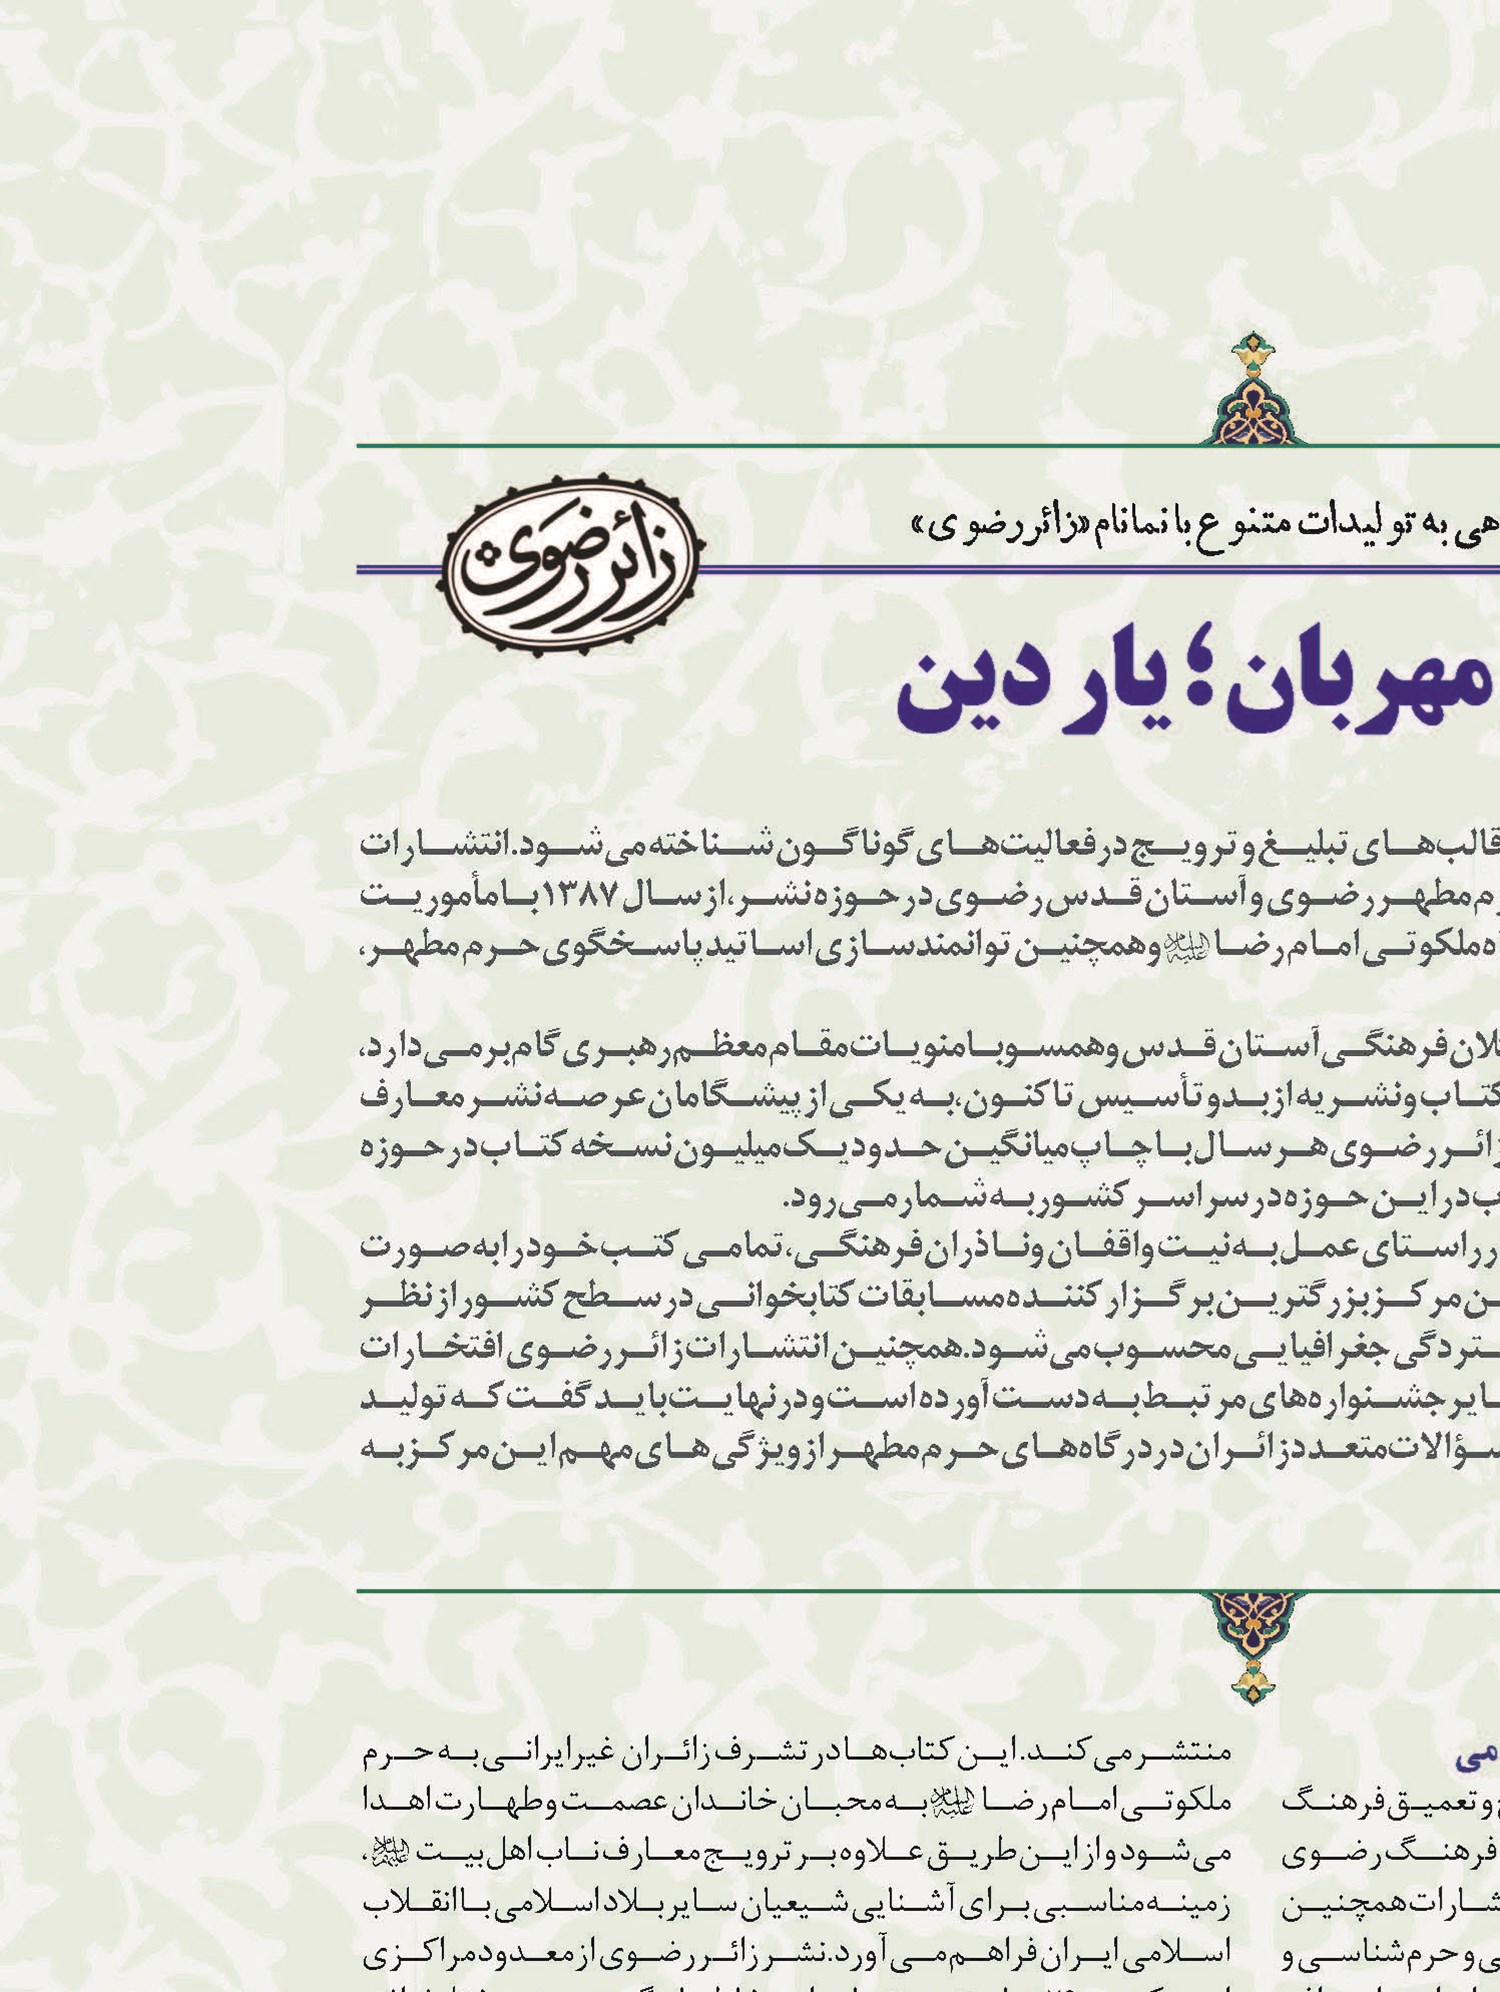 به تولیدات متنوع با نمانام «زائر رضوی»
زائر رضوی
مهربان؛ یار دین
قالب‌های تبلیغ و ترویج در فعالیت‌های گوناگون شناخته می‌شود. انتشارات
مطهر رضوی و آستان قدس رضوی در حوزه نشر، از سال ۱۳۸۷ با مأموریت
ملکوتی امام رضا علیه‌السلام و همچنین توانمندسازی اساتید پاسخگوی حرم مطهر،
فرهنگی آستان قدس و همسو با منویات مقام معظم رهبری گام برمی‌دارد،
کتاب و نشریه از بدو تأسیس تاکنون، به یکی از پیشگامان عرصه نشر معارف
زائر رضوی هر سال با چاپ میانگین حدود یک میلیون نسخه کتاب در حوزه
در این حوزه در سراسر کشور به شمار می‌رود.
راستای عمل به نیت واقفان و ناذران فرهنگی، تمامی کتب خود را به صورت
مرکز بزرگترین برگزار کننده مسابقات کتابخوانی در سطح کشور از نظر
جغرافیایی محسوب می‌شود. همچنین انتشارات زائر رضوی افتخارات
جشنواره‌های مرتبط به دست آورده است و در نهایت باید گفت که تولید
سؤالات متعدد زائران در درگاه‌های حرم مطهر از ویژگی‌های مهم این مرکز به
و تعمیق فرهنگ
فرهنگ رضوی
همچنین
و حرم شناسی و
منتشر می‌کند. این کتاب‌ها در تشرف زائران غیرایرانی به حرم
ملکوتی امام رضا علیه‌السلام به محبان خاندان عصمت و طهارت اهدا
می‌شود و از این طریق علاوه بر ترویج معارف ناب اهل بیت علیهم‌السلام،
زمینه مناسبی برای آشنایی شیعیان سایر بلاد اسلامی با انقلاب
اسلامی ایران فراهم می‌آورد. نشر زائر رضوی از معدود مراکزی